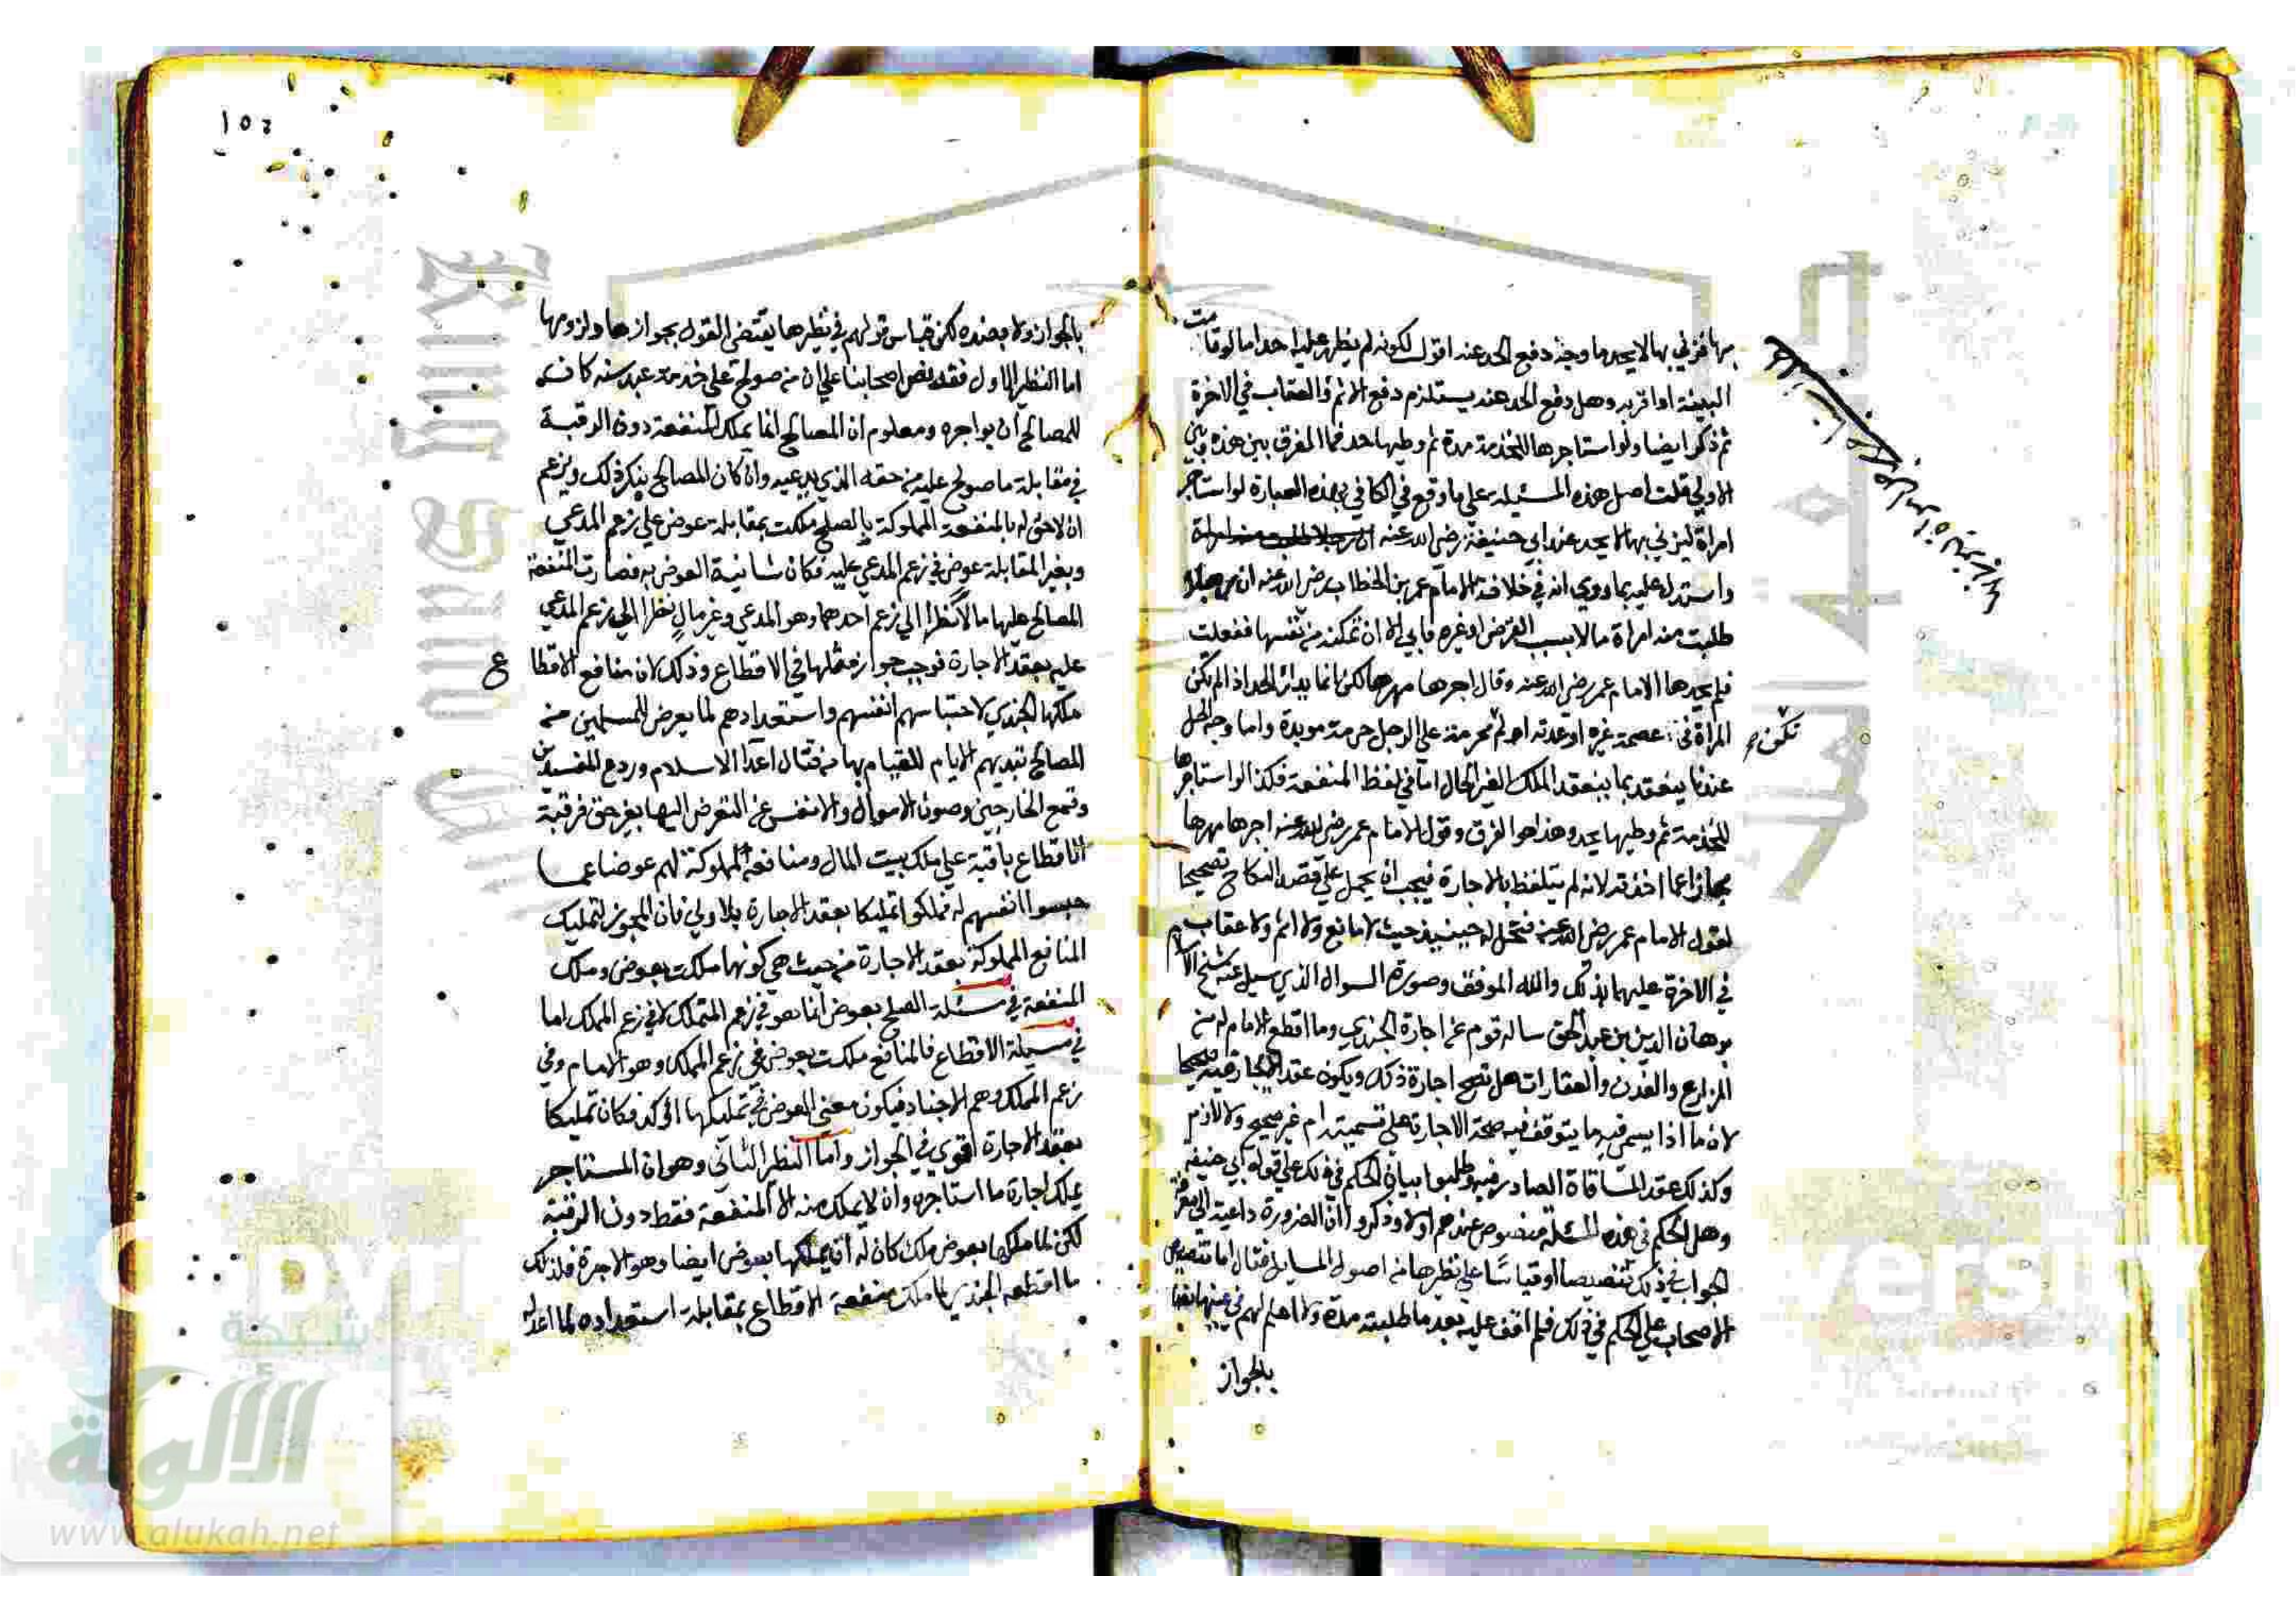 بها فزني بها لا يحد ما وجه دفع الحد عنه اقول لكونه لم يظهر عليه احد اما لوقامت
البينة او اقر به وهل دفع الحد عنه يستلزم دفع الاثم والعقاب في الاخرة
ثم ذكر ايضا ولو استاجرها للخدمة مدة ثم وطيها حد فما الفرق بين هذه وبين
الاولي قلت اصل هذه المسئلة علي ما وقع في الكافي بهذه العبارة لو استاجر
امراة ليزني بها لا يحد عند ابي حنيفة رضي الله عنه
واستدل عليه بما روي انه في خلافة الامام عمر بن الخطاب رضي الله عنه ان رجلا
طلبت منه امراة مالا بسبب القرض او غيره فابي الا ان تمكنه من نفسها ففعلت
فلم يحدها الامام عمر رضي الله عنه وقال اجرها مهرها لكن انما يدرأ الحد اذا لم تكن
المراة في عصمة غيره او عدته او لم تكن محرمة علي الرجل حرمة موبدة واما وجه الحل
عندنا ينعقد بما ينعقد الملك الغير الحال اما في لفظ المنفعة فكذا لو استاجرها
للخدمة ثم وطيها يحد وهذا هو الفرق وقول الامام عمر رضي الله عنه اجرها مهرها
مجازا عما اخذته لانه لم يتلفظ بالاجارة فيجب ان يحمل علي قصد النكاح تصحيحا
لقول الامام عمر رضي الله عنه فتحل له حينيذ حيث لا مانع ولا اثم ولا عقاب
في الاخرة عليهما بذلك والله الموفق وصورة السوال الذي سيل عنه شيخ الاسلام
برهان الدين بن عبد الحق ساله قوم عن اجارة الجندي وما اقطع الامام له من
المزارع والفدن والعقارات هل تصح اجارة ذلك ويكون عقد الايجار فيه صحيحا
لازما اذا سم فيه ما يتوقف فيه صحة الاجارة علي تسميته ام غير صحيح ولا لازم
وكذلك عقد المساقاة الصادر فيه وطلبوا بيان الحكم في ذلك علي قول ابي حنيفة
وهل الحكم في هذه المسئلة منصوص عندهم اولا وذكروا ان الضرورة داعية الي معرفة
الجواب في ذلك تنصيصا او قياسا علي نظيرها من اصول المسايل فقال اما تنصيص
الاصحاب علي الحكم في ذلك فلم اقف عليه بعد ما طلبته مدة ولا اعلم لهم في عينها نصا
بالجواز
تكن
١٥٤
بالجواز ولا بضده لكن قياس قولهم في نظيرها يقتضي القول بجوازها ولزومها
اما النظير الاول فقد نص اصحابنا علي ان من صولح علي خدمة عبد سنة كان
للمصالح ان يواجره ومعلوم ان المصالح انما يملك المنفعة دون الرقبة
في مقابلة ما صولح عليه من حقه الذي يدعيه وان كان المصالح ينكر ذلك ويزعم
ان لا حق له بالمنفعة المملوكة بالصلح ملكت بمقابلة عوض علي زعم المدعي
وبغير المقابلة عوض في زعم المدعي عليه فكان شائبة العوض به فصارت المنفعة
المصالح عليها مالا نظرا الي زعم احدهما وهو المدعي وغير مال نظرا الي زعم المدعي
عليه بعقد الاجارة فوجب جواز مثلها في الاقطاع وذلك لان منافع الاقطاع
ملكها الجندي لاحتباسهم انفسهم واستعدادهم لما يعرض للمسلمين من
المصالح للقيام بها من قتال اعدا الاسلام وردع المفسدين
وقمع الخارجين وصون الاموال والانفس عن التعرض اليها بغير حق فرقبة
الاقطاع باقية علي ملك بيت المال ومنافعه المملوكة لهم عوضا عما
حبسوا انفسهم له فملكوا تمليكا بعقد الاجارة بلاولي فان المجوز لتمليك
المنافع المملوكة بعقد الاجارة من حيث هي كونها ملكت بعوض وملك
المنفعة في مسئلة الصلح بعوض انما هو في زعم المتملك لا في زعم المملك اما
في مسيلة الاقطاع فالمنافع ملكت بعوض في زعم المملك وهو الامام وفي
زعم المملك وهم الاجناد فيكون معني العوض في تمليكها اكد فكان تمليكا
بعقد الاجارة اقوي في الجواز واما النظر الثاني وهو ان المستاجر
يملك اجارة ما استاجره وان لا يملك منه الا المنفعة فقط دون الرقبة
لكن لما ملكها بعوض ملك كان له ان يملكها بعوض ايضا وهو الاجرة فلذلك
ما اقطعه الجندي لما ملك منفعة الاقطاع بمقابلة استعداده لما اعد له
شبكة
الألوكة
www.alukah.net
King Saud